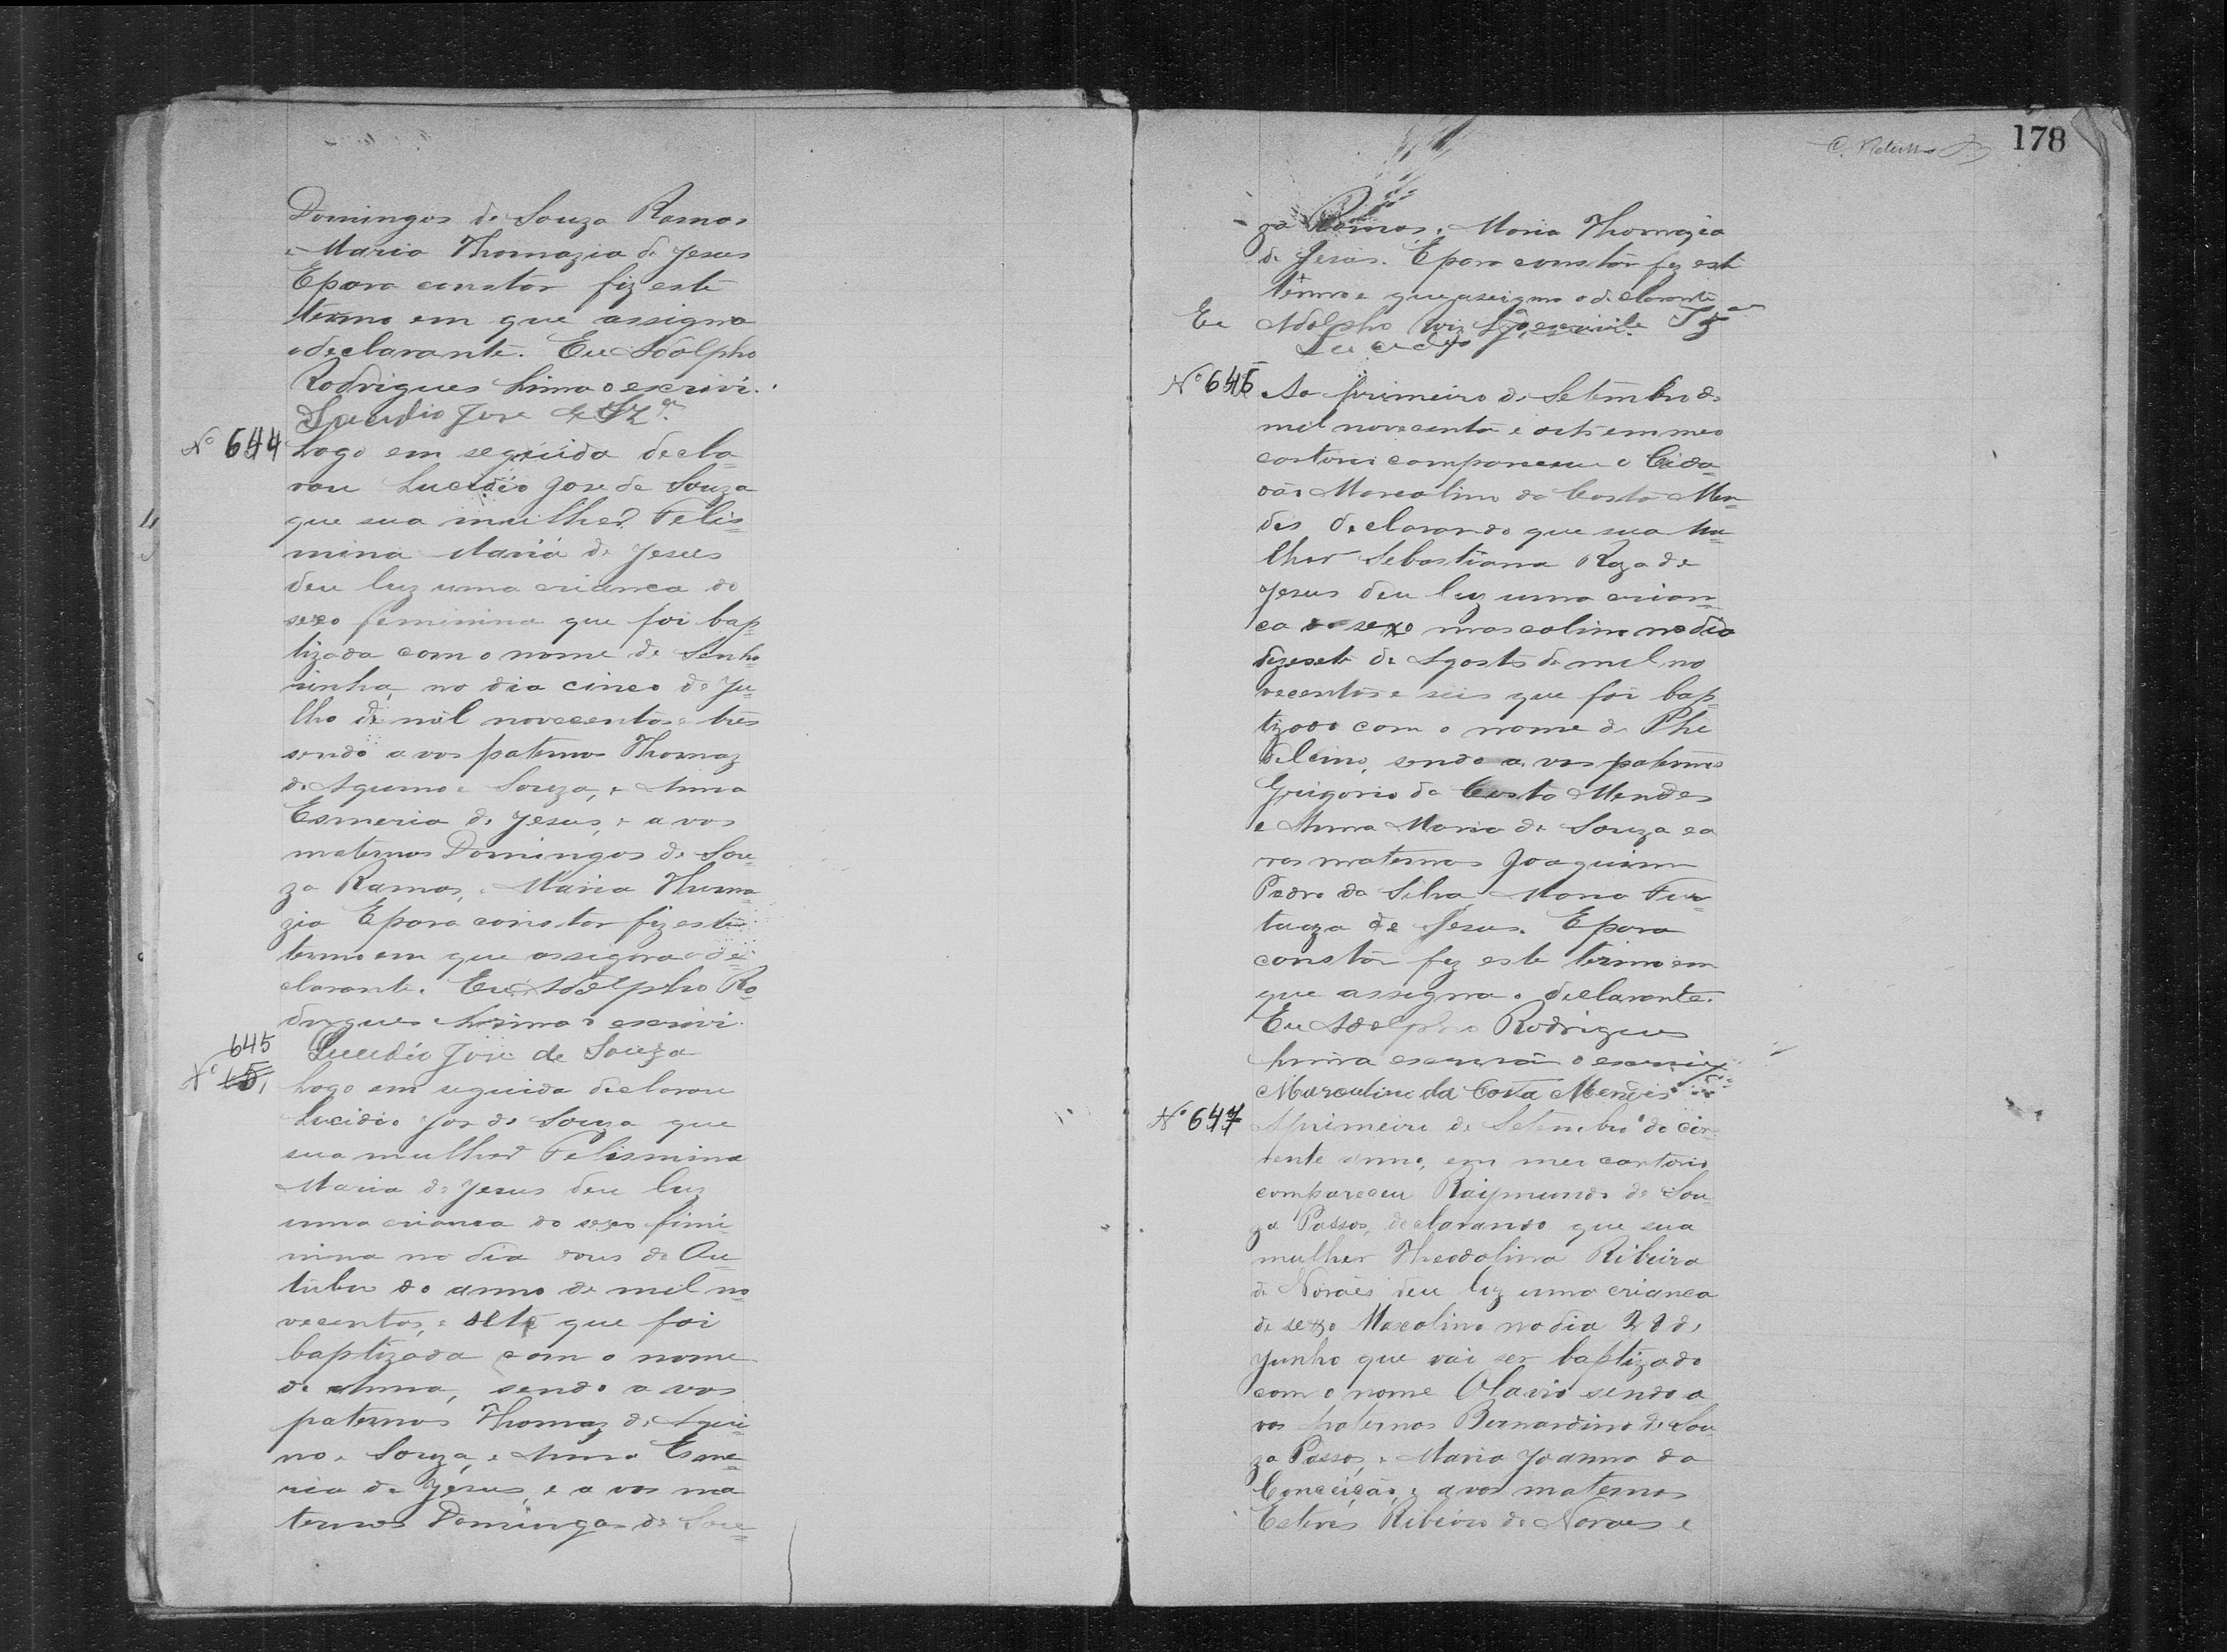 Domingos de Souza Ramos
e Maria Thomazia de Jesus
E para constar fiz este
termo em que assigna
o declarante. Eu Adolpho
Rodrigues Lima o escrivi.
Lucidio Jose de Sza
Nº 644 Logo em seguida decla=
rou Lucidio Jose de Souza
que sua mulher Felis=
mina Maria de Jesus
deu luz uma crianca do
sexo feminina que foi bap=
tizada com o nome de Senho
rinha, no dia cinco de Ju=
lho de mil novecentos e tres
sendo avos paternos Thomaz
de Aquino e Souza, e Anna
Esmeria de Jesus, e avos
maternos Domingos de Sou=
za Ramos, e Maria Thoma
zia E para constar fiz este
termo em que assigna o de=
clarante. Eu Adolpho Ro=
drigues Lima o escrivi.
645 Lucidio Jose de Souza
Nº Logo em seguida declarou
Lucidio Jose de Souza que
sua mulher Felismina
Maria de Jesus deu luz
uma crianca do sexo femi=
nina no dia dous de Ou=
tubro do anno de mil no=
vecentos, e sete que foi
baptizada com o nome
de Anna, sendo avos
paternos Thomaz de Aqui=
no e Souza, e Anna Esme=
ria de Jesus, e avos ma
ternos Domingos de Sou=
178
za Ramos, e Maria Thomazia
de Jesus. E para constar fiz este
termo e que assigna o declarante
Eu Adolpho
Nº 646 Ao primeiro de Setembro de
mil novecento e oito em meo
cartorio compareceu o Cida=
dão Marcolino da Costa Men=
des declarando que sua mu=
lher Sebastiana Roza de
Jesus deu luz uma crian=
ca do sexo mascolino no dia
dezesete de Agosto de mil no
vecentos e seis que foi bap=
tizado com o nome de Phi
delcino, sendo avos paternos
Grigorio da Costa Mendes
e Anna Maria de Souza ea
vos maternos Joaquim
Pedro da Silva, Maria For=
tuoza de Jesus. E para
constar fiz este termo em
que assigna o declarante.
Eu Adolpho Rodrigues
Lima escrivão o escrivi
Marculino da Costa Mendes
Nº 647 Aprimeiro de Setembro do cor=
rente anno, em meu cartorio
compareceu Raymundo de Sou=
za Passos, declarando que sua
mulher Theodolina Ribeiro
de Novaes deu luz uma crianca
de sexo Mascolino no dia 28 de
Junho que vai ser baptizado
com o nome Olavio sendo a
vos paternos Bernardino de Sou=
za Passos, e Maria Joanna da
Conceição, e avos maternos
Esteves Ribeiro de Novaes e